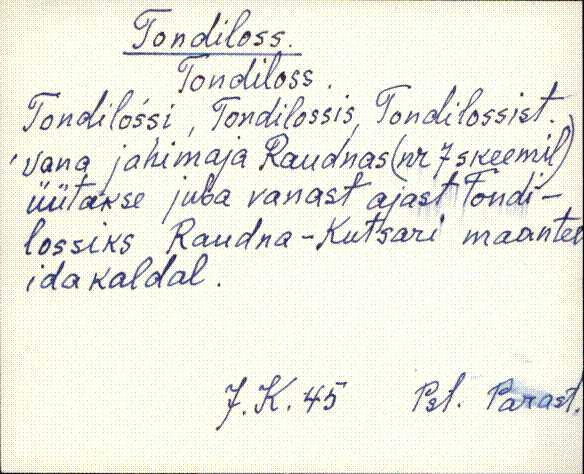 Tondiloss.
Tondiloss.
Tondilossi, Tondilossis, Tondilossist.
vana jahimaja Raudnas (nr 7 skeemil)
üütakse juba vanast ajast Tondi-
lossiks Raudna-Kutsari maantee
idakaldal.
J. K. 45 Pst. Parast.